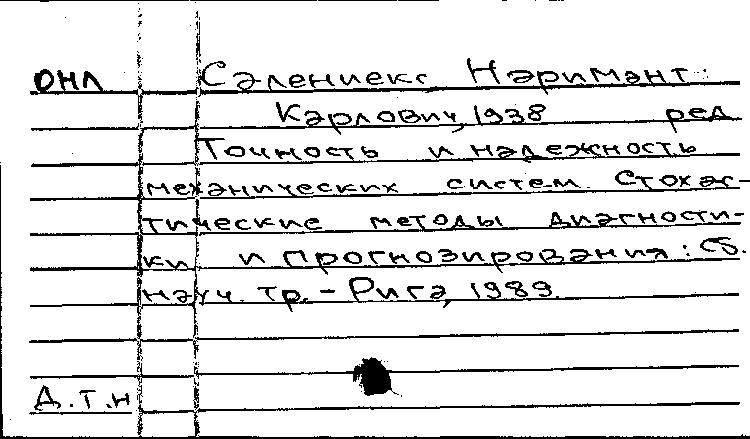 ОНЛ Салениекс Наримант
Карлович, 1938 ред
Точность и надежность
механических систем. Стохас-
тические методы диагности-
ки и прогнозирования: сб.
науч. тр. - Рига, 1989.
Д.т.н